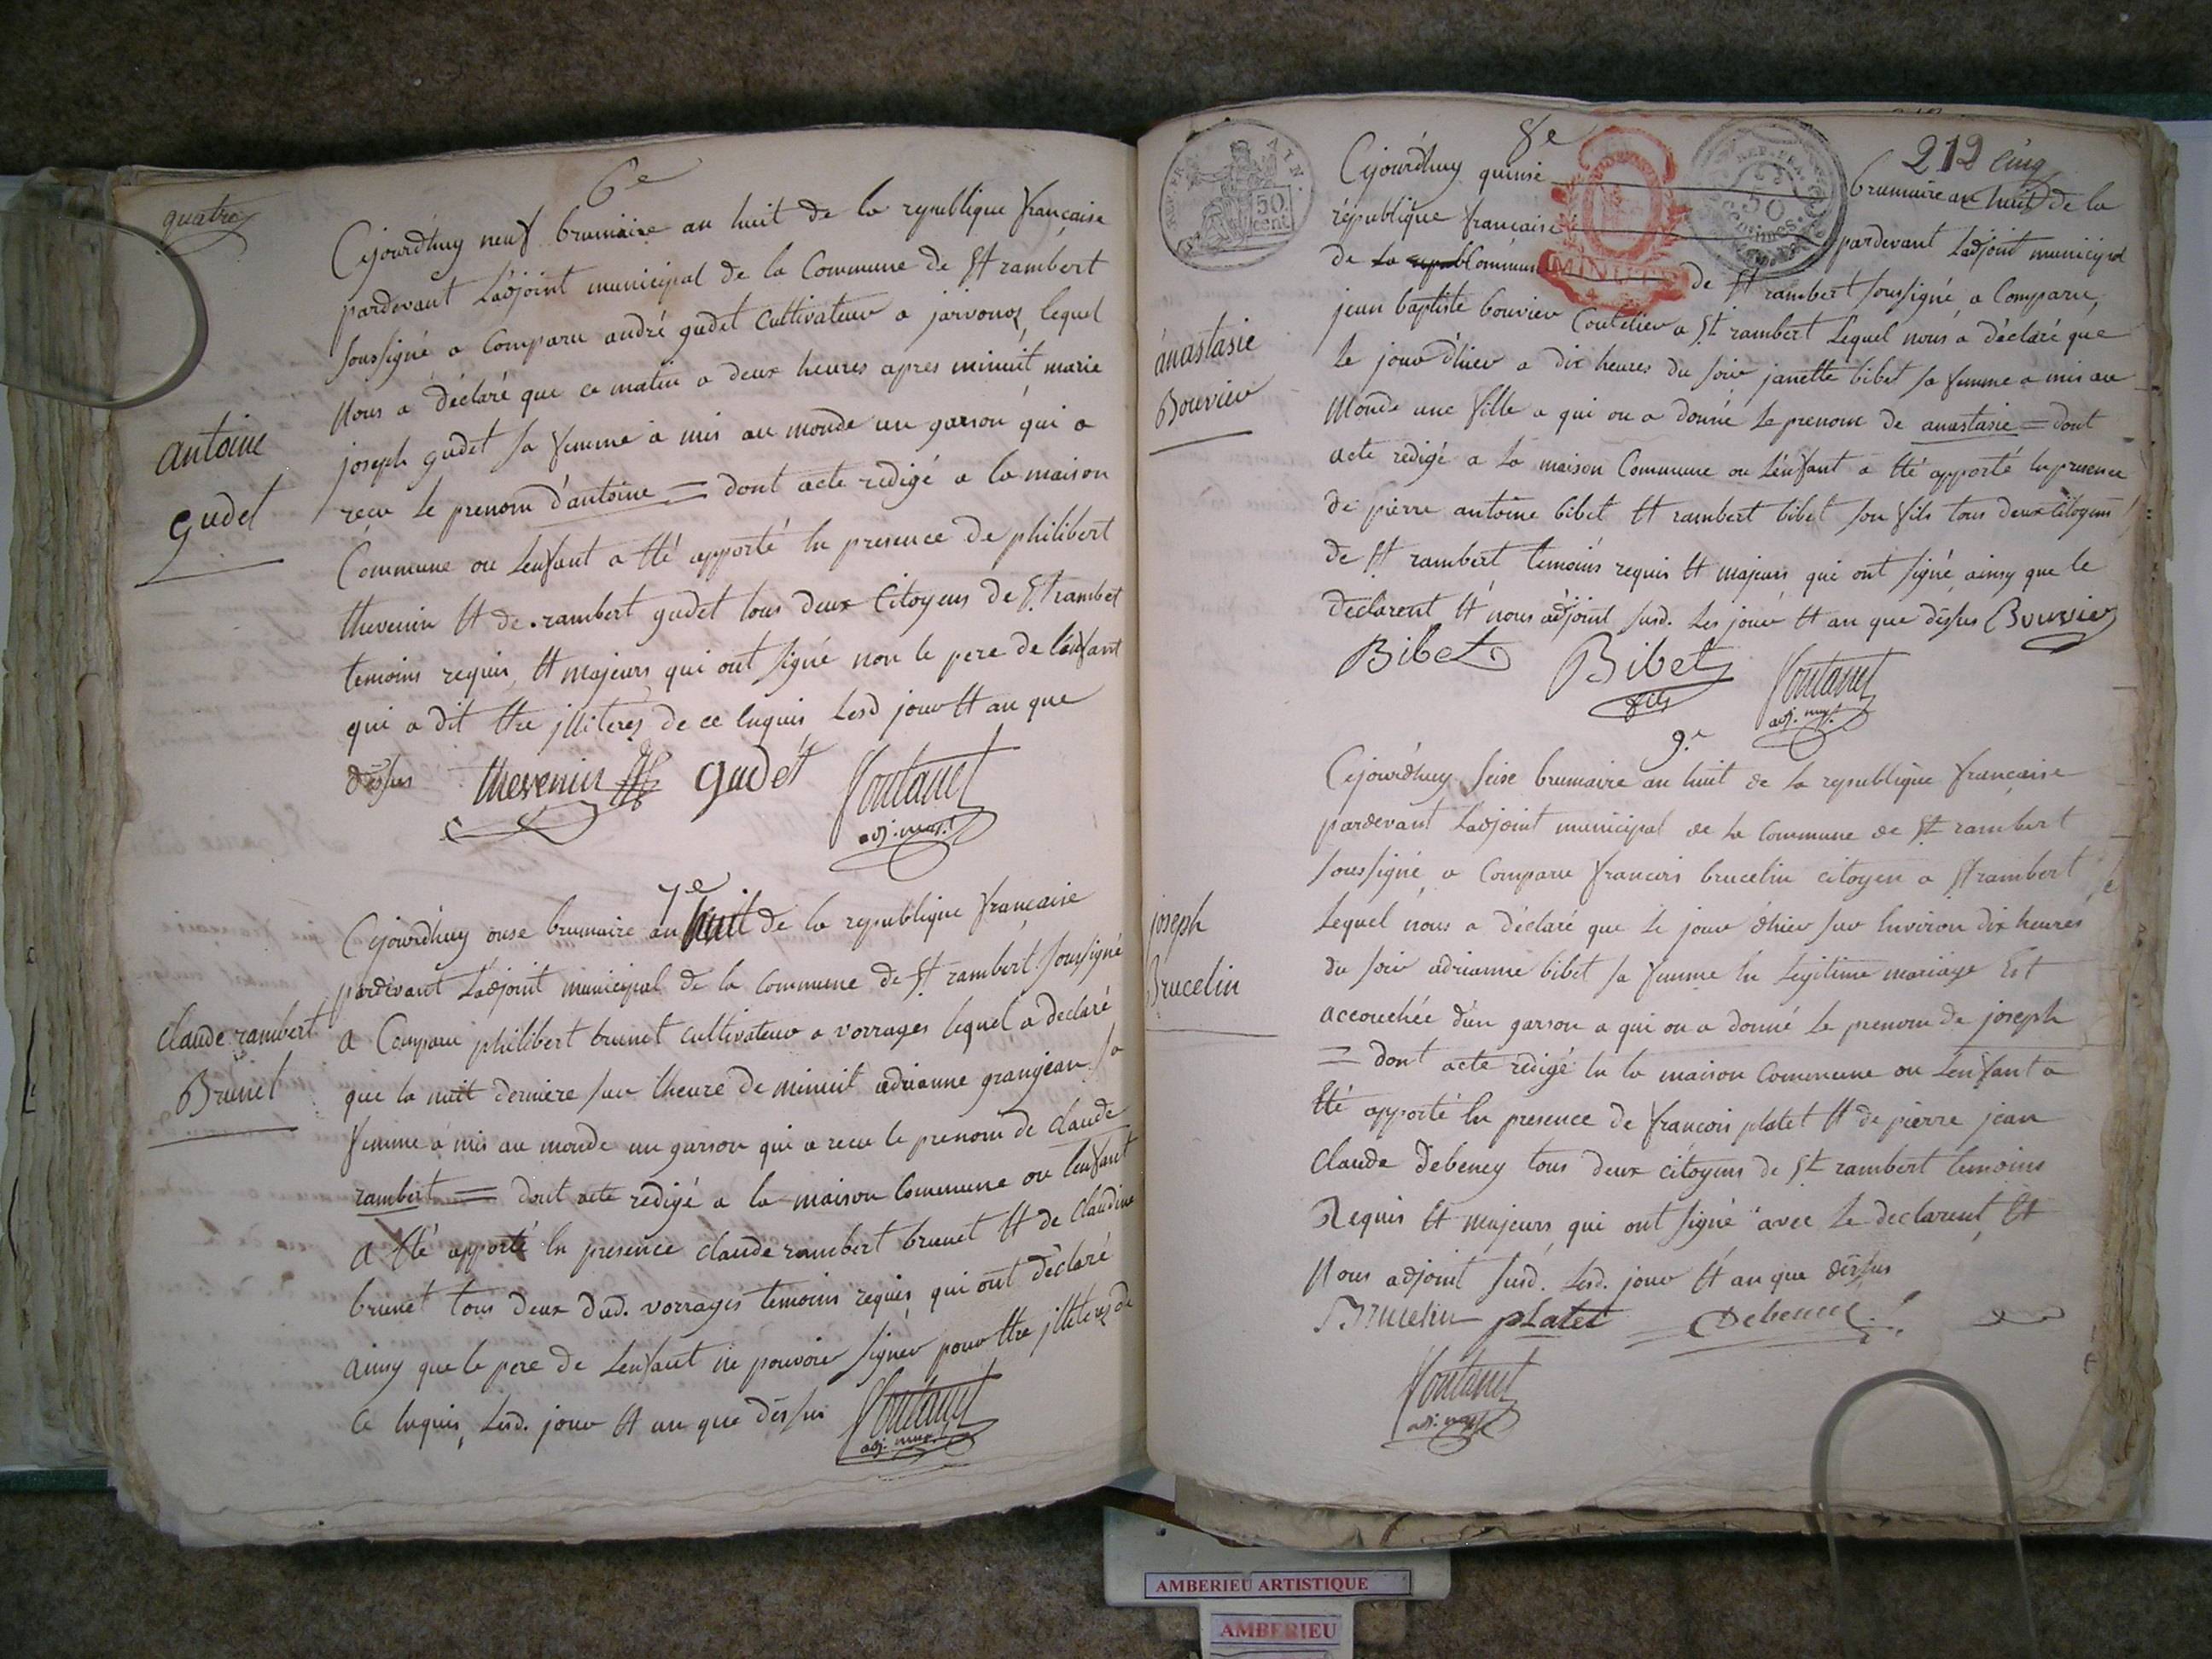 quatre
6e
Cejourdhuy neuf brumaire an huit de la republique française
pardevant L'adjoint municipal de la Commune de St rambert
soussigné a Comparu andré gudet Cultivateur a jarvonoz, lequel
Nous a déclaré que ce matin a deux heures apres minuit marie
joseph gudet sa femme a mis au monde un garson qui a
recu le prenom d'antoine = dont acte redigé a la maison
Commune ou L'enfant a été apporté En presence de philibert
thevenin Et de rambert gudet tous deux Citoyens de St rambert
temoins requis, Et majeurs qui ont signé non le pere de l'enfant
qui a dit Etre jlliterez de ce Enquis Lesd jour Et an que
dessus thevenin gudet fontanet
adj. mup.l
antoine
gudet
7e
Cejourdhuy onse brumaire an huit de la republique française
pardevant L'adjoint municipal de la commune de St rambert soussigné
a Comparu philibert brunet cultivateur a vorrages lequel a declaré
que la nuit derniere sur l'heure de minuit adrianne granjean sa
femme a mis au monde un garson qui a recu le prenom de claude
rambert = dont acte redigé a la maison Commune ou l'enfant
a Eté apporté En presence claude rambert brunet Et de claudine
brunet tous deux dud. vorrages temoins requis, qui ont déclaré
ainsy que le pere de L'enfant ne pouvoir signer pour Etre jlliterez de
Ce Enquis, Lesd. jour Et an que dessus fontanet
adj. mup.
claude rambert
Brunet
212 cinq
8e
REP. FRA. NATN.
50 cent
MINUTE
REP. FRA.
50 centimes
Cejourdhuy quinse brumaire an huit de la
république française pardevant L'adjoint municipal
de la repub Commune de St rambert soussigné a Comparu,
jean baptiste bouvier Coutelier a St rambert Lequel nous a déclaré que
Le jour d'hier a dix heures du soir janette bibet sa femme a mis au
Monde une fille a qui on a donné Le prenom de anastasie = dont
acte redigé a La maison Commune ou L'énfant a Eté apporté En presence
de pierre antoine bibet Et rambert bibet son fils tous deux Citoyens
de St rambert temoins requis Et majeurs qui ont signé ainsy que le
declarent Et nous adjoint susd. Les jour Et an que dessus Bouvier
Bibet Bibet fils fontanet
adj. mup.
anastasie
Bouvier
9e
Cejourdhuy seise brumaire an huit de La republique française
pardevant L'adjoint municipal de La Commune de St rambert
soussigné a Comparu françois brucelin citoyen a St rambert
Lequel nous a déclaré que Le jour d'hier sur Environ dix heures
du soir adrianne bibet sa femme En Legitime mariage Est
accouchée d'un garson a qui on a donné Le prenom de joseph
= dont acte redigé En La maison Commune ou L'enfant a
Eté apporté En presence de françois platet Et de pierre jean
Claude Debeney tous deux citoyens de St rambert temoins
Requis Et majeurs qui ont signé avec Le declarent, Et
Nous adjoint susd. Lesd. jour Et an que dessus
Brucelin platet Debeney
fontanet
adj. mup.
joseph
Brucelin
AMBERIEU ARTISTIQUE
AMBERIEU